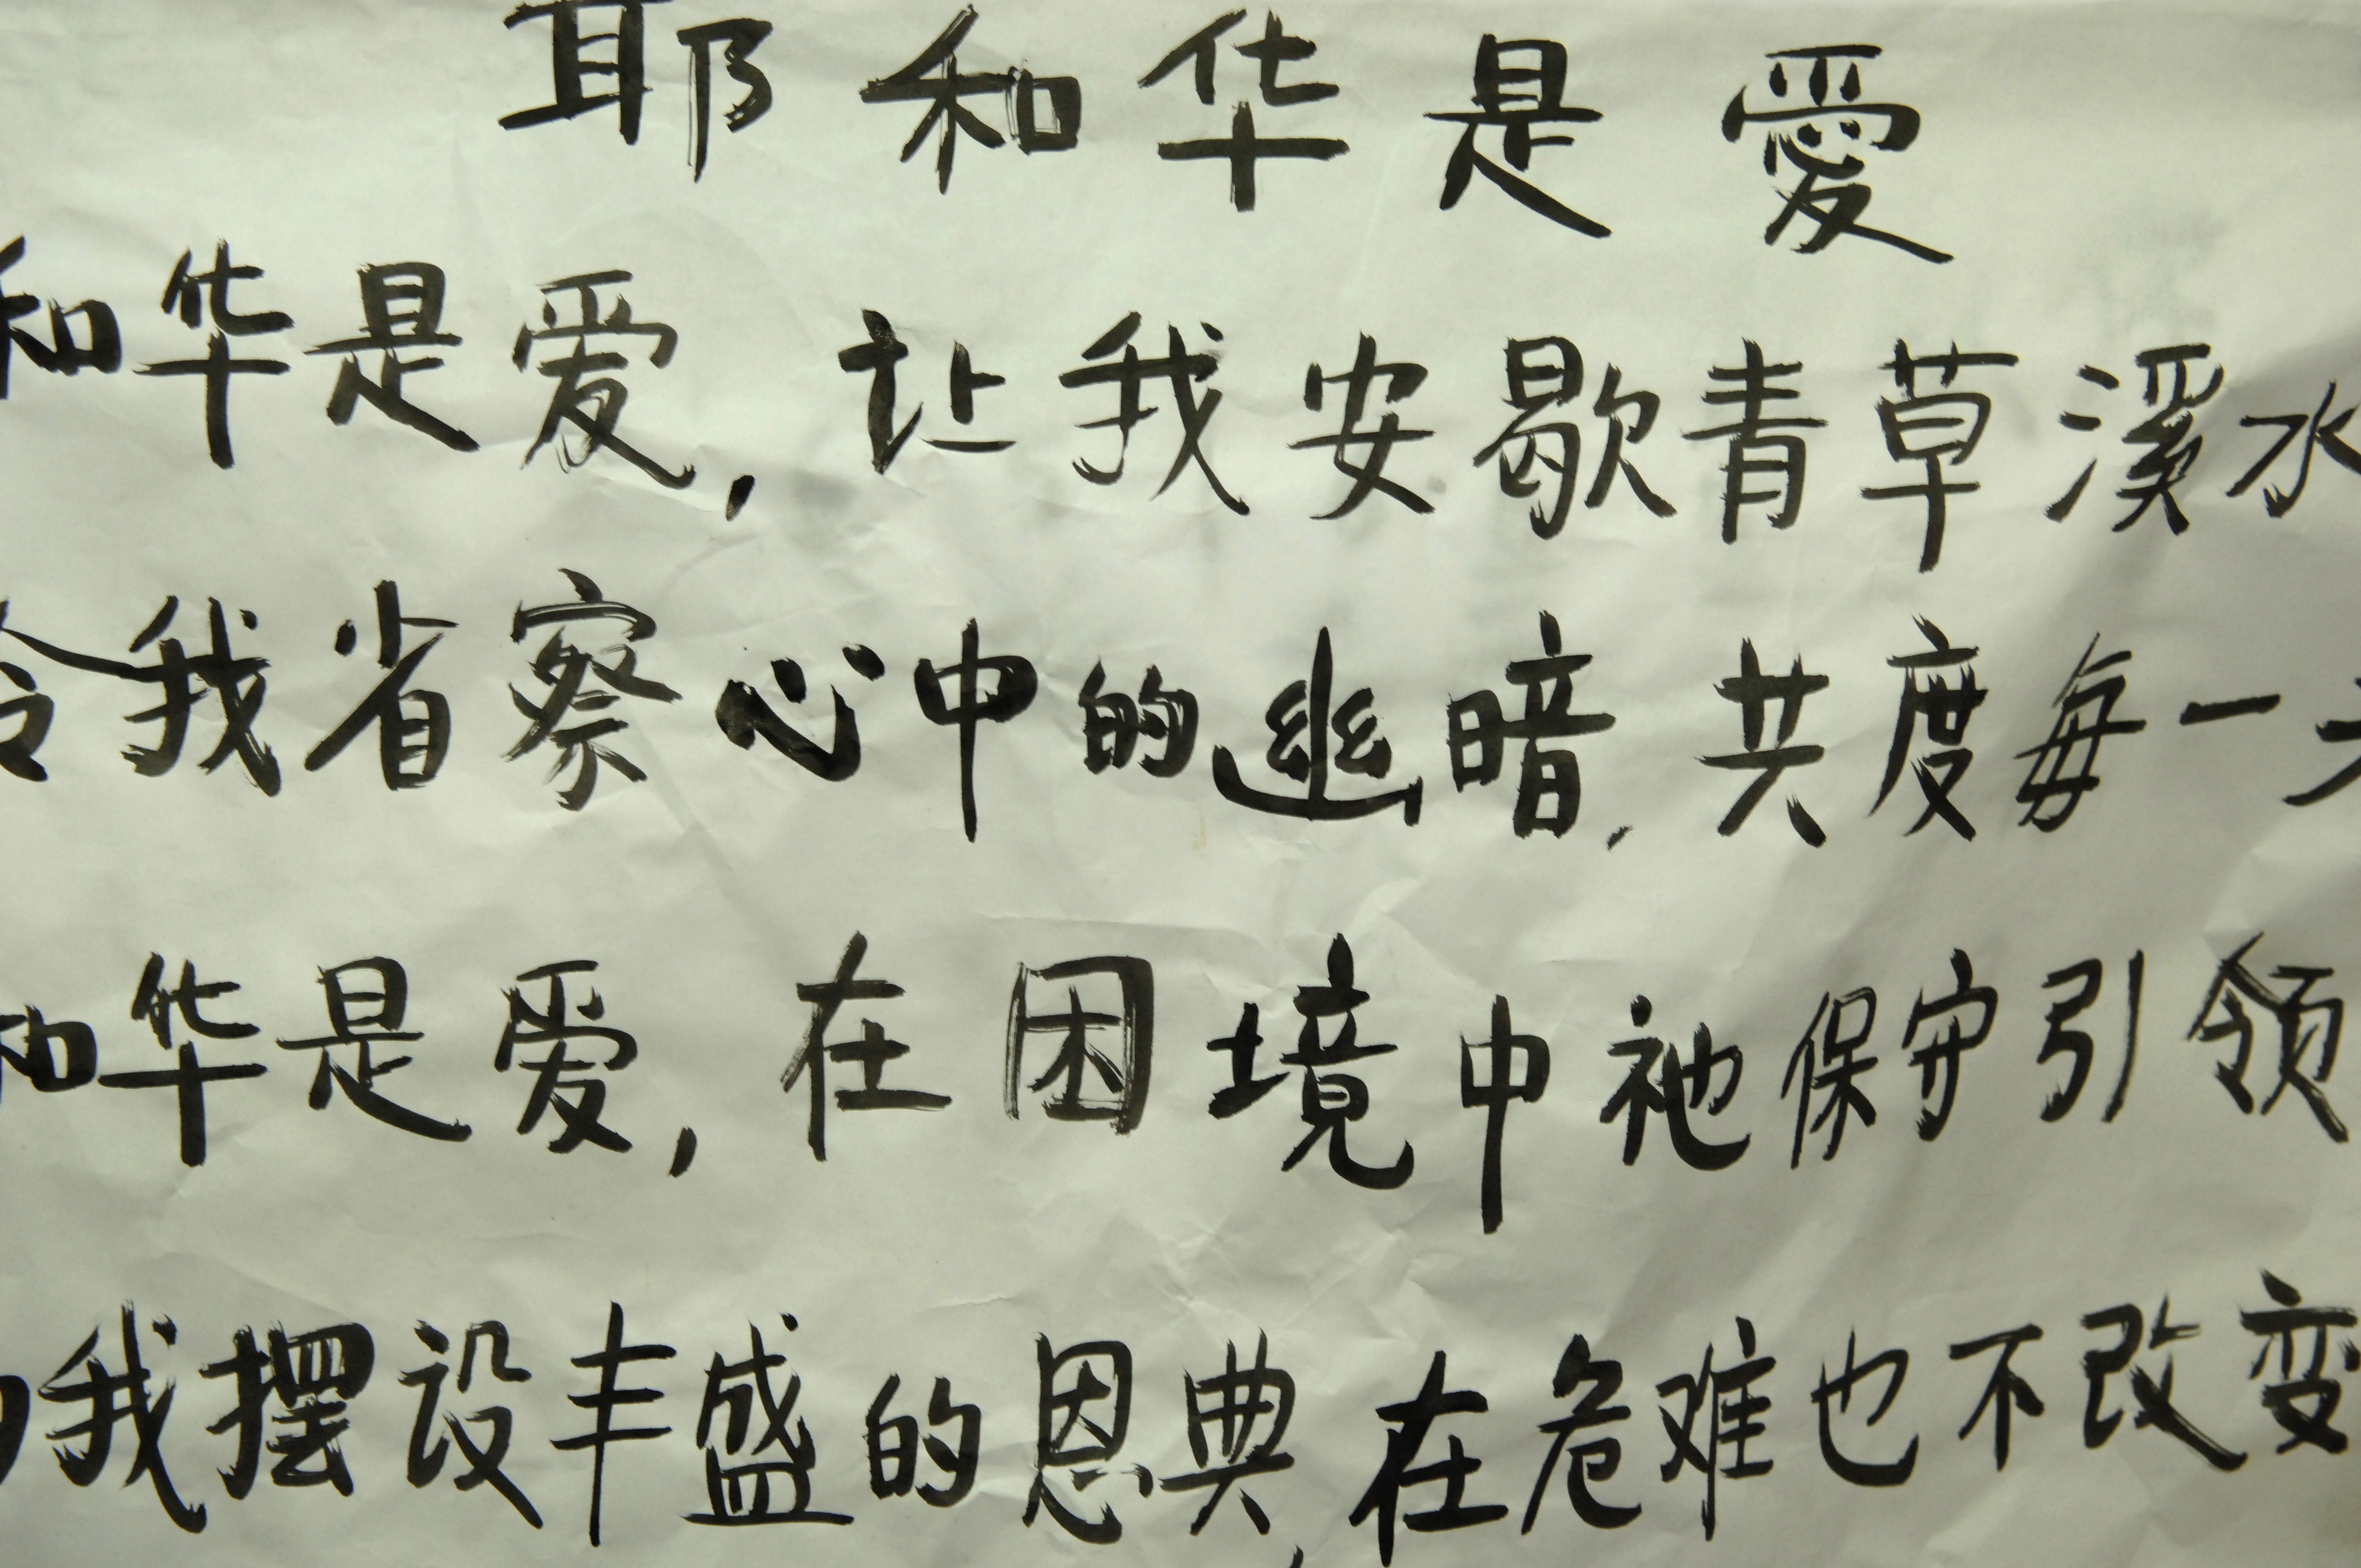 耶和华是愛
和华是爱，让我安歇青草溪水
令我省察心中的幽暗，共度每一天
和华是爱，在困境中祂保守引领
我摆设丰盛的恩典，在危难也不改变